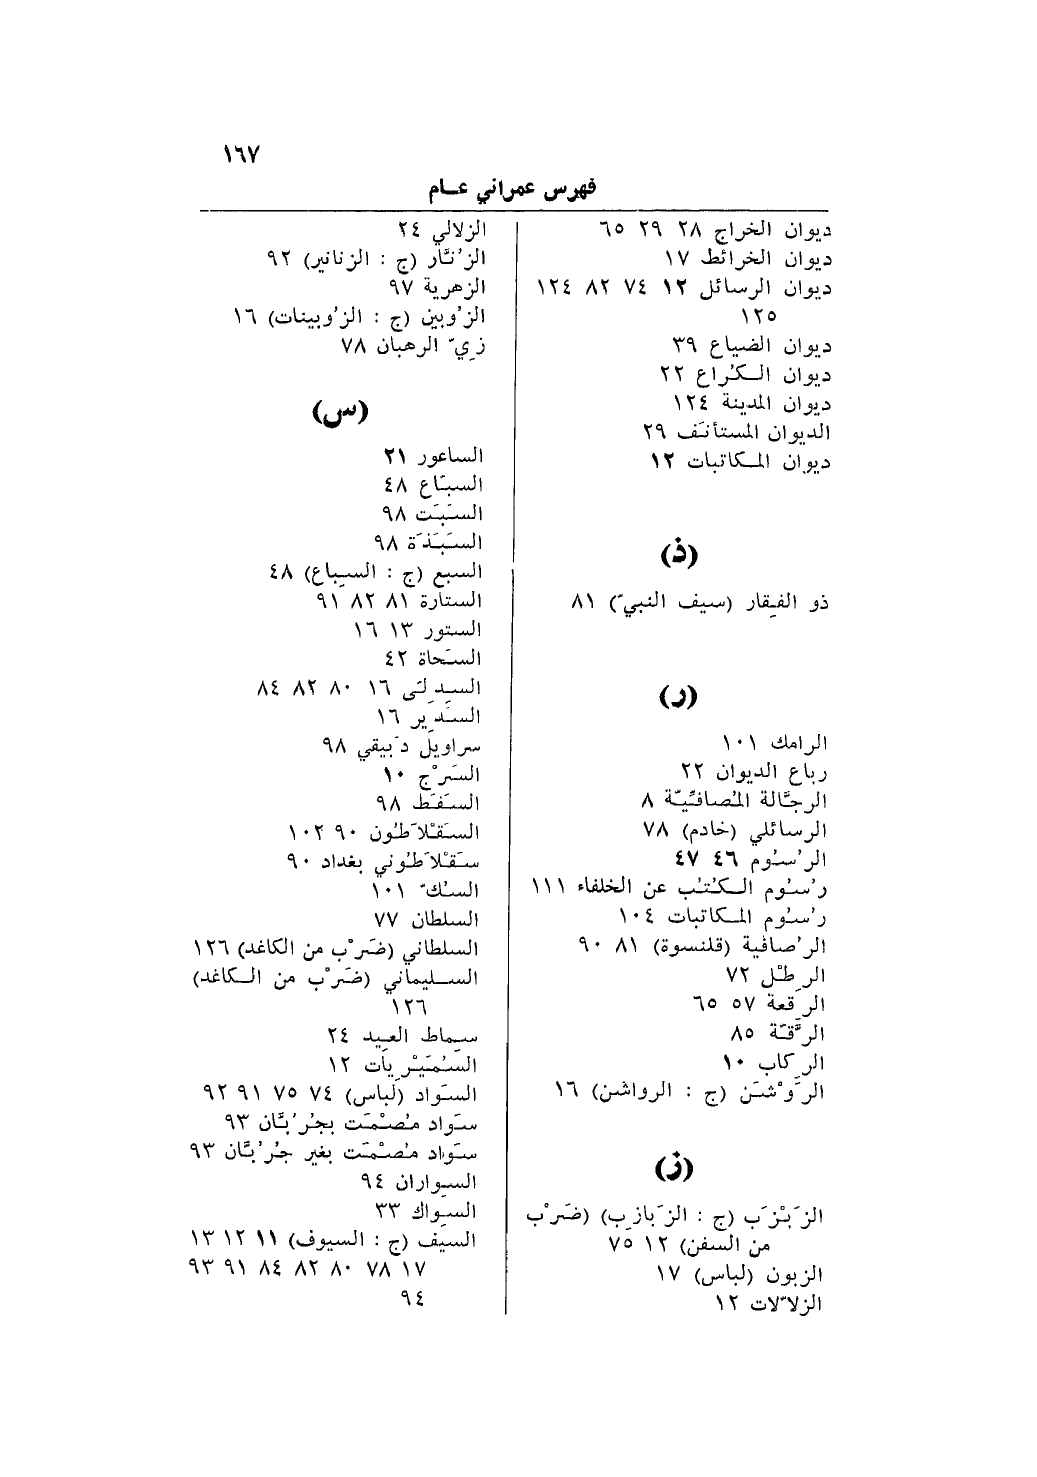 ١٦٧
فهرس عمراني عام
ديوان الخراج ٢٨ ٢٩ ٦٥
ديوان الخرائط ١٧
ديوان الرسائل ١٢ ٧٤ ٨٢ ١٢٤
١٢٥
ديوان الضياع ٣٩
ديوان الكُراع ٢٢
ديوان المدينة ١٢٤
الديوان المستأنَف ٢٩
ديوان المكاتبات ١٢
(ذ)
ذو الفِقار (سيف النبيّ) ٨١
(ر)
الرامك ١٠١
رباع الديوان ٢٢
الرجَّالة المُصافيَّة ٨
الرسائلي (خادم) ٧٨
الرُسوم ٤٦ ٤٧
رُسوم الكُتُب عن الخلفاء ١١١
رُسوم المكاتبات ١٠٤
الرُصافية (قلنسوة) ٨١ ٩٠
الرِطْل ٧٢
الرقعة ٥٧ ٦٥
الرَّقّة ٨٥
الرِكاب ١٠
الرَوْشَن (ج : الرواشن) ١٦
(ز)
الزَبْزَب (ج : الزَبازِب) (ضَرْب
من السفن) ١٢ ٧٥
الزبون (لباس) ١٧
الزلاّلات ١٢
الزلالي ٢٤
الزُنّار (ج : الزنانير) ٩٢
الزهرية ٩٧
الزُوبين (ج : الزُوبينات) ١٦
زِيّ الرهبان ٧٨
(س)
الساعور ٢١
السبّاع ٤٨
السَبَت ٩٨
السَبَذَة ٩٨
السبع (ج : السباع) ٤٨
الستارة ٨١ ٨٢ ٩١
الستور ١٣ ١٦
السَحاة ٤٢
السِدِلّى ١٦ ٨٠ ٨٢ ٨٤
السَدِير ١٦
سراويل دَبيقي ٩٨
السَرْج ١٠
السَفَط ٩٨
السَقْلاَطُون ٩٠ ١٠٢
سَقْلاَطُوني بغداد ٩٠
السُكّ ١٠١
السلطان ٧٧
السلطاني (ضَرْب من الكاغد) ١٢٦
السليماني (ضَرْب من الكاغد)
١٢٦
سِماط العيد ٢٤
السُمَيْرِيات ١٢
السَواد (لباس) ٧٤ ٧٥ ٩١ ٩٢
سَواد مُصْمَت بجُرُبَّان ٩٣
سَواد مُصْمَت بغير جُرُبَّان ٩٣
السِواران ٩٤
السِواك ٣٣
السيف (ج : السيوف) ١١ ١٢ ١٣
١٧ ٧٨ ٨٠ ٨٢ ٨٤ ٩١ ٩٣
٩٤